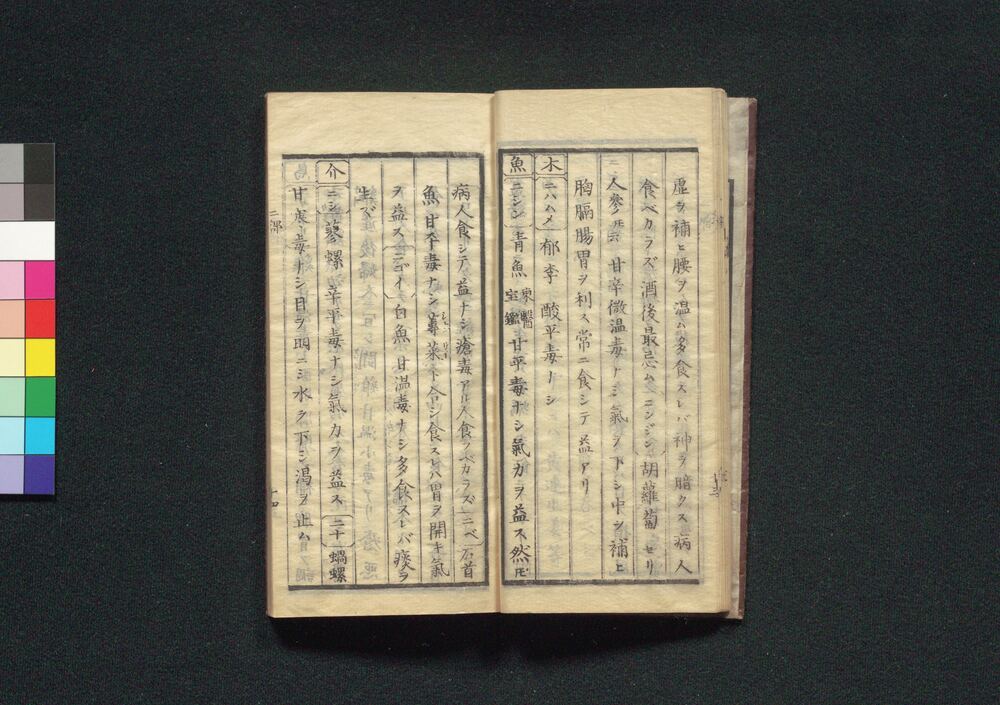 虚ヲ補ヒ腰ヲ温ム多食スレバ神ヲ暗クス病人
食ベカラズ酒後最忌ム ニンジン 胡蘿蔔 セリ
ニンジンモ云 甘辛微温毒ナシ氣ヲ下シ中ヲ補ヒ
胸膈腸胃ヲ利ス常ニ食シテ益アリ
木 ニハムメ 郁李 酸平毒ナシ
魚 ニシン 青魚 東醫宝鑑 甘平毒ナシ氣力ヲ益ス然𪜈
病人食シテ益ナシ瘡毒アル人食フベカラズ ニベ 石首
魚 甘平毒ナシ蓴菜ト合シ食スレバ胃ヲ開キ氣
ヲ益ス ニゴイ 白魚 甘温毒ナシ多食スレバ痰ヲ
生ズ
介 ニシ 蓼螺 辛平毒ナシ氣力ヲ益ス ニナ 蝸螺
甘寒毒ナシ目ヲ明ニシ水ヲ下シ渇ヲ止ム
ニ部
十四